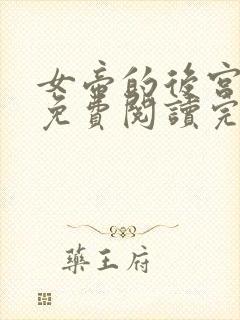 女帝的後宮
免費閱讀完
藥王府